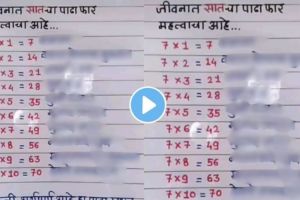 वनात सातचा पाढा फार
त्वाचा आहे...
× 1 = 7
× 2 = 14
× 3 = 21
× 4 = 28
× 5 = 35
×6 = 42
×7 = 49
×8 = 56
×9 = 63
×10 = 70
जीवनात सातचा पाढा फार
महत्वाचा आहे...
7 × 1 = 7
7 × 2 = 14
7 × 3 = 21
7 × 4 = 28
7 × 5 = 35
7 × 6 = 42
7 × 7 = 49
7 × 8 = 56
7 × 9 = 63
7 × 10 = 70